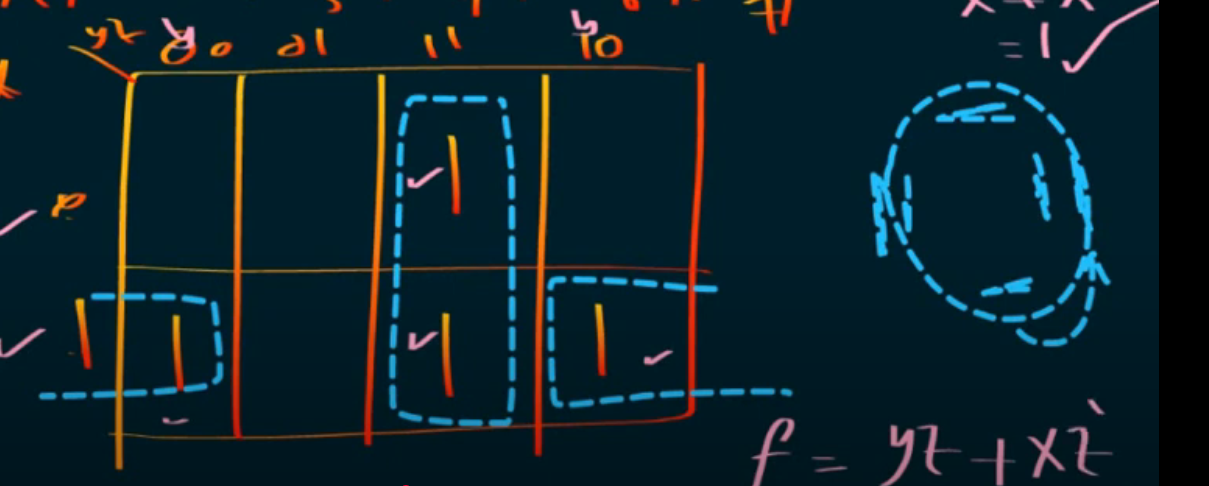 = 1
yz 00 01 11 10
0
1
1 1 1 1
f = yz + xz`